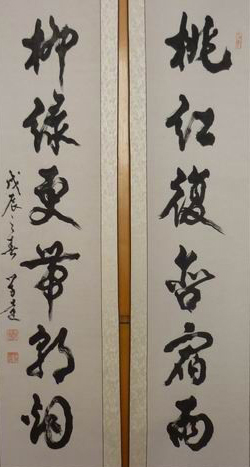 桃紅復含宿雨
柳綠更帶朝烟
戊辰之春